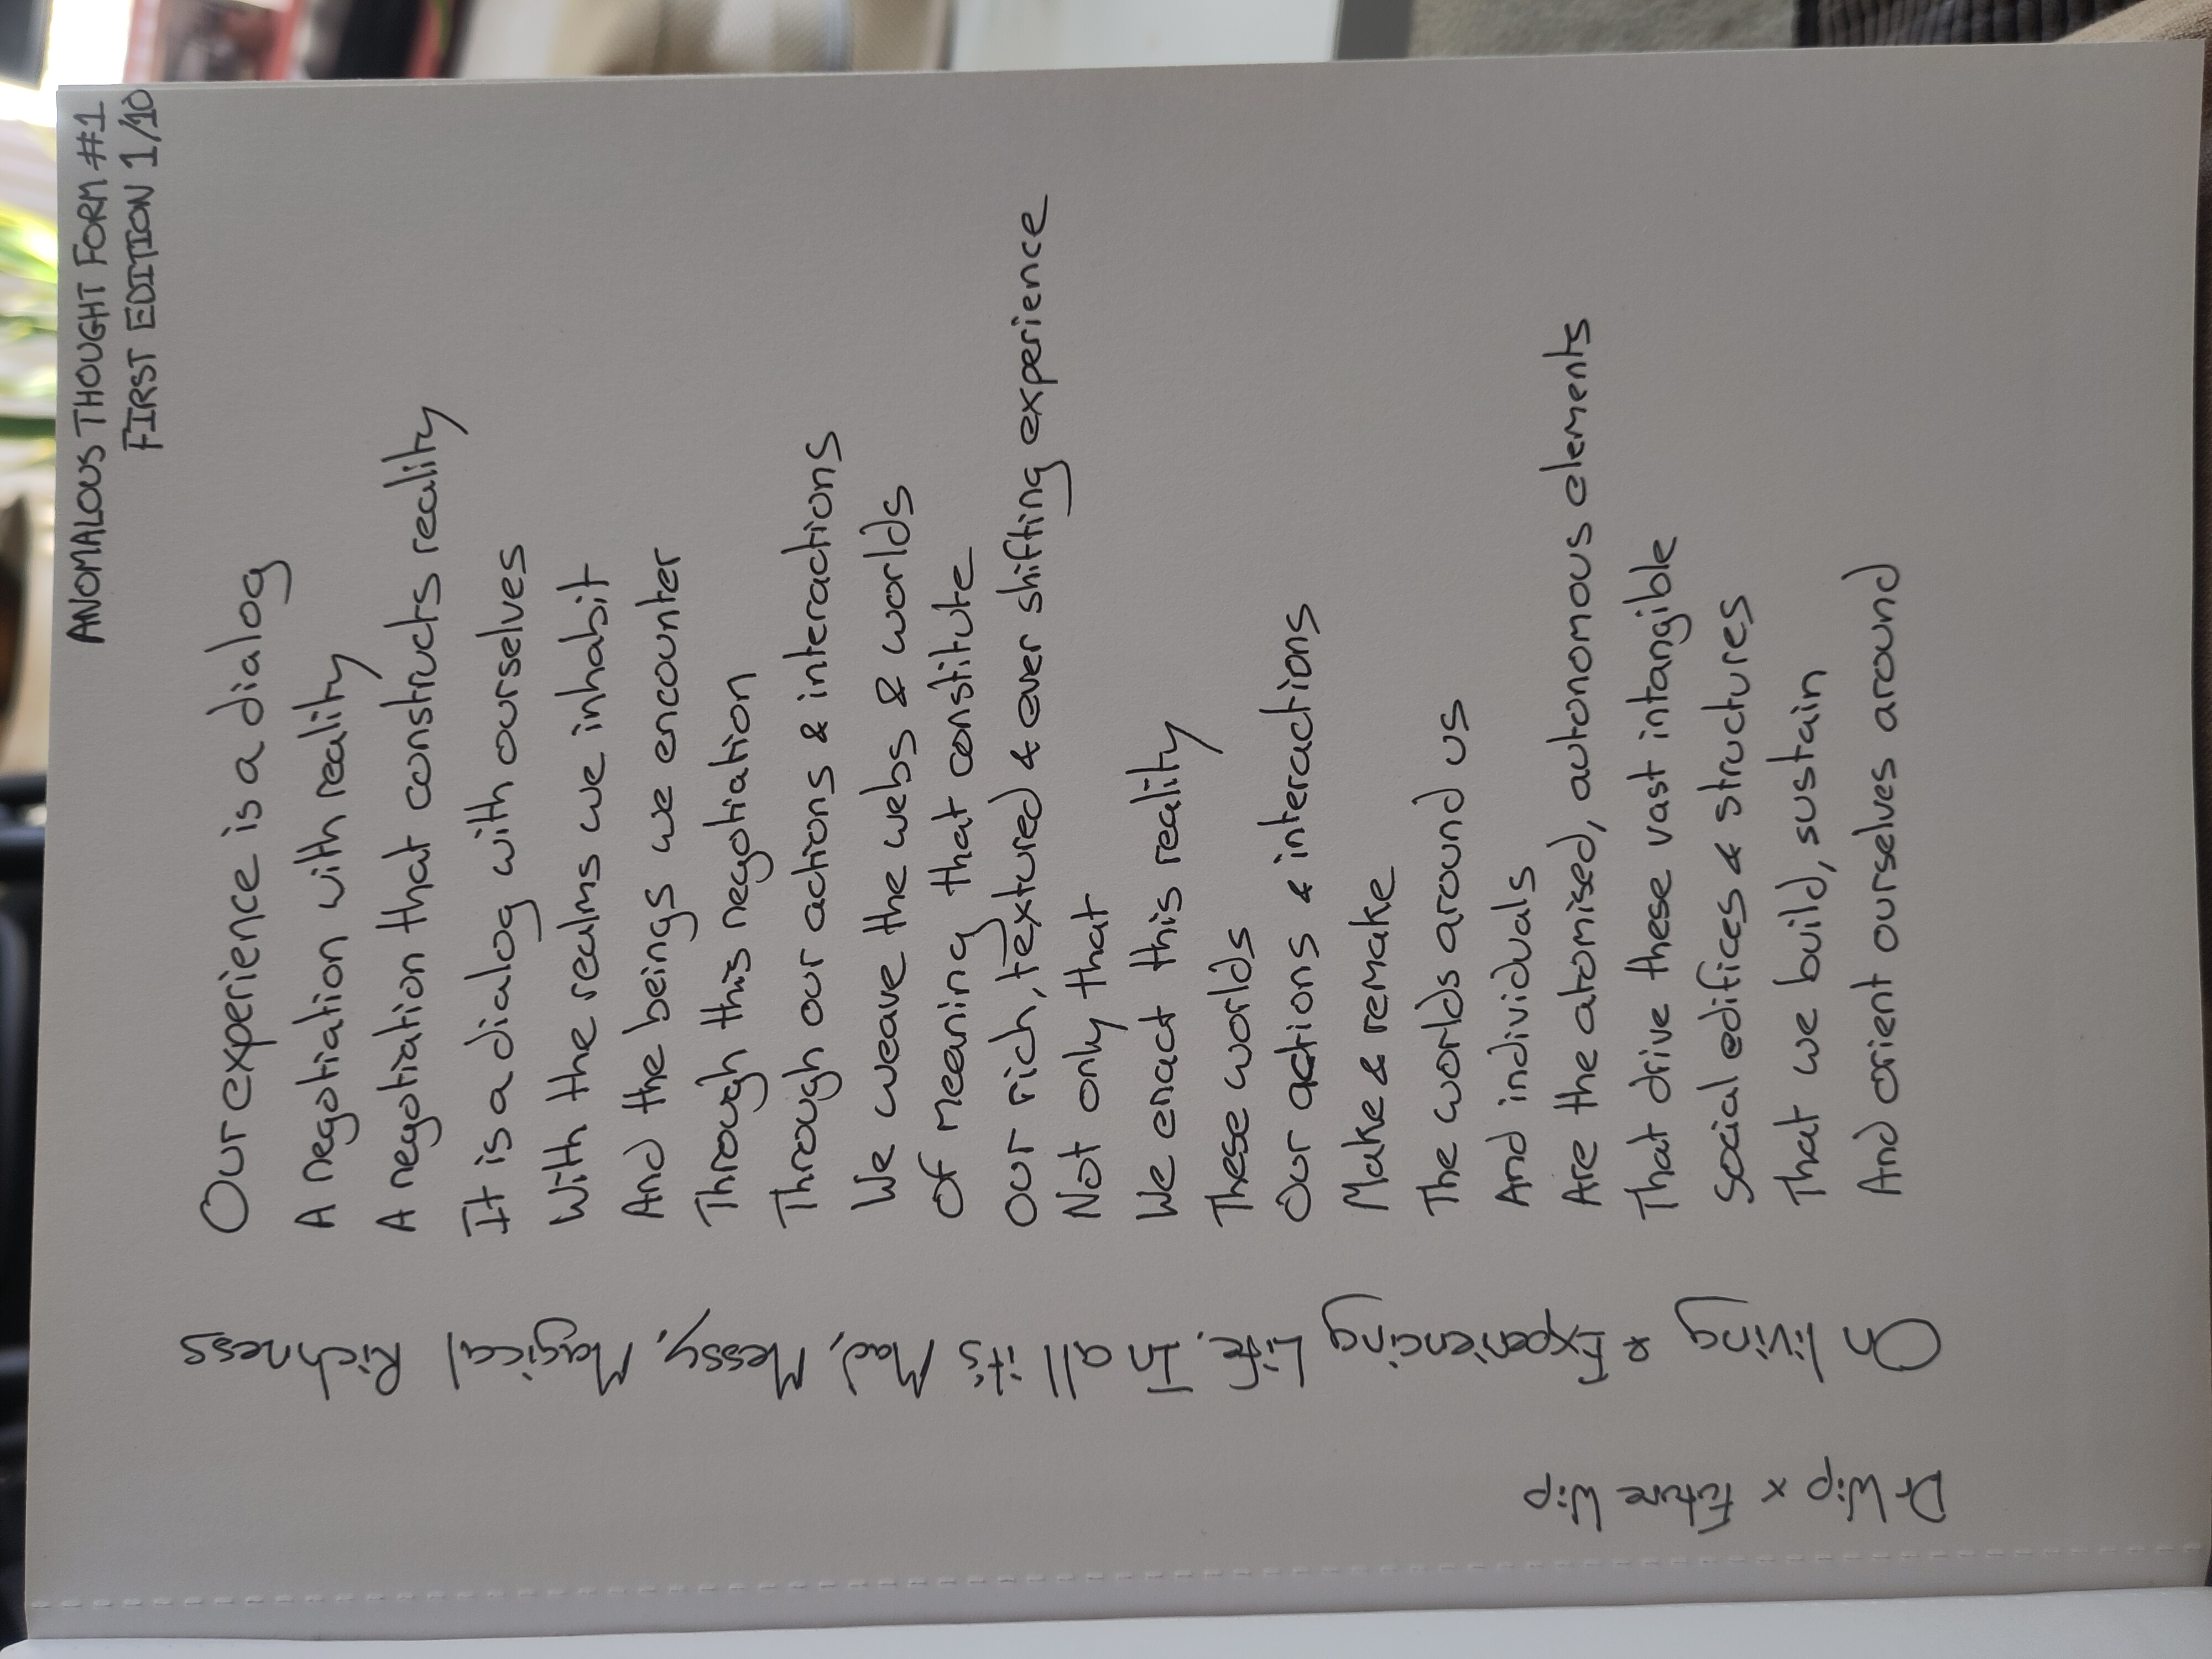 ANOMALOUS THOUGHT FORM #1
FIRST EDITION 1/10
Our experience is a dialog
A negotiation with reality
A negotiation that constructs reality
It is a dialog with ourselves
With the realms we inhabit
And the beings we encounter
Through this negotiation
Through our actions & interactions
We weave the webs & worlds
Of meaning that constitute
Our rich, textured & ever shifting experience
Not only that
We enact this reality
These worlds
Our actions & interactions
Make & remake
The worlds around us
And individuals
Are the atomised, autonomous elements
That drive these vast intangible
Social edifices & structures
That we build, sustain
And orient ourselves around
On living & Experiencing Life, In all it's Mad, Messy, Magical Richness
Dr Wip x Future Wip